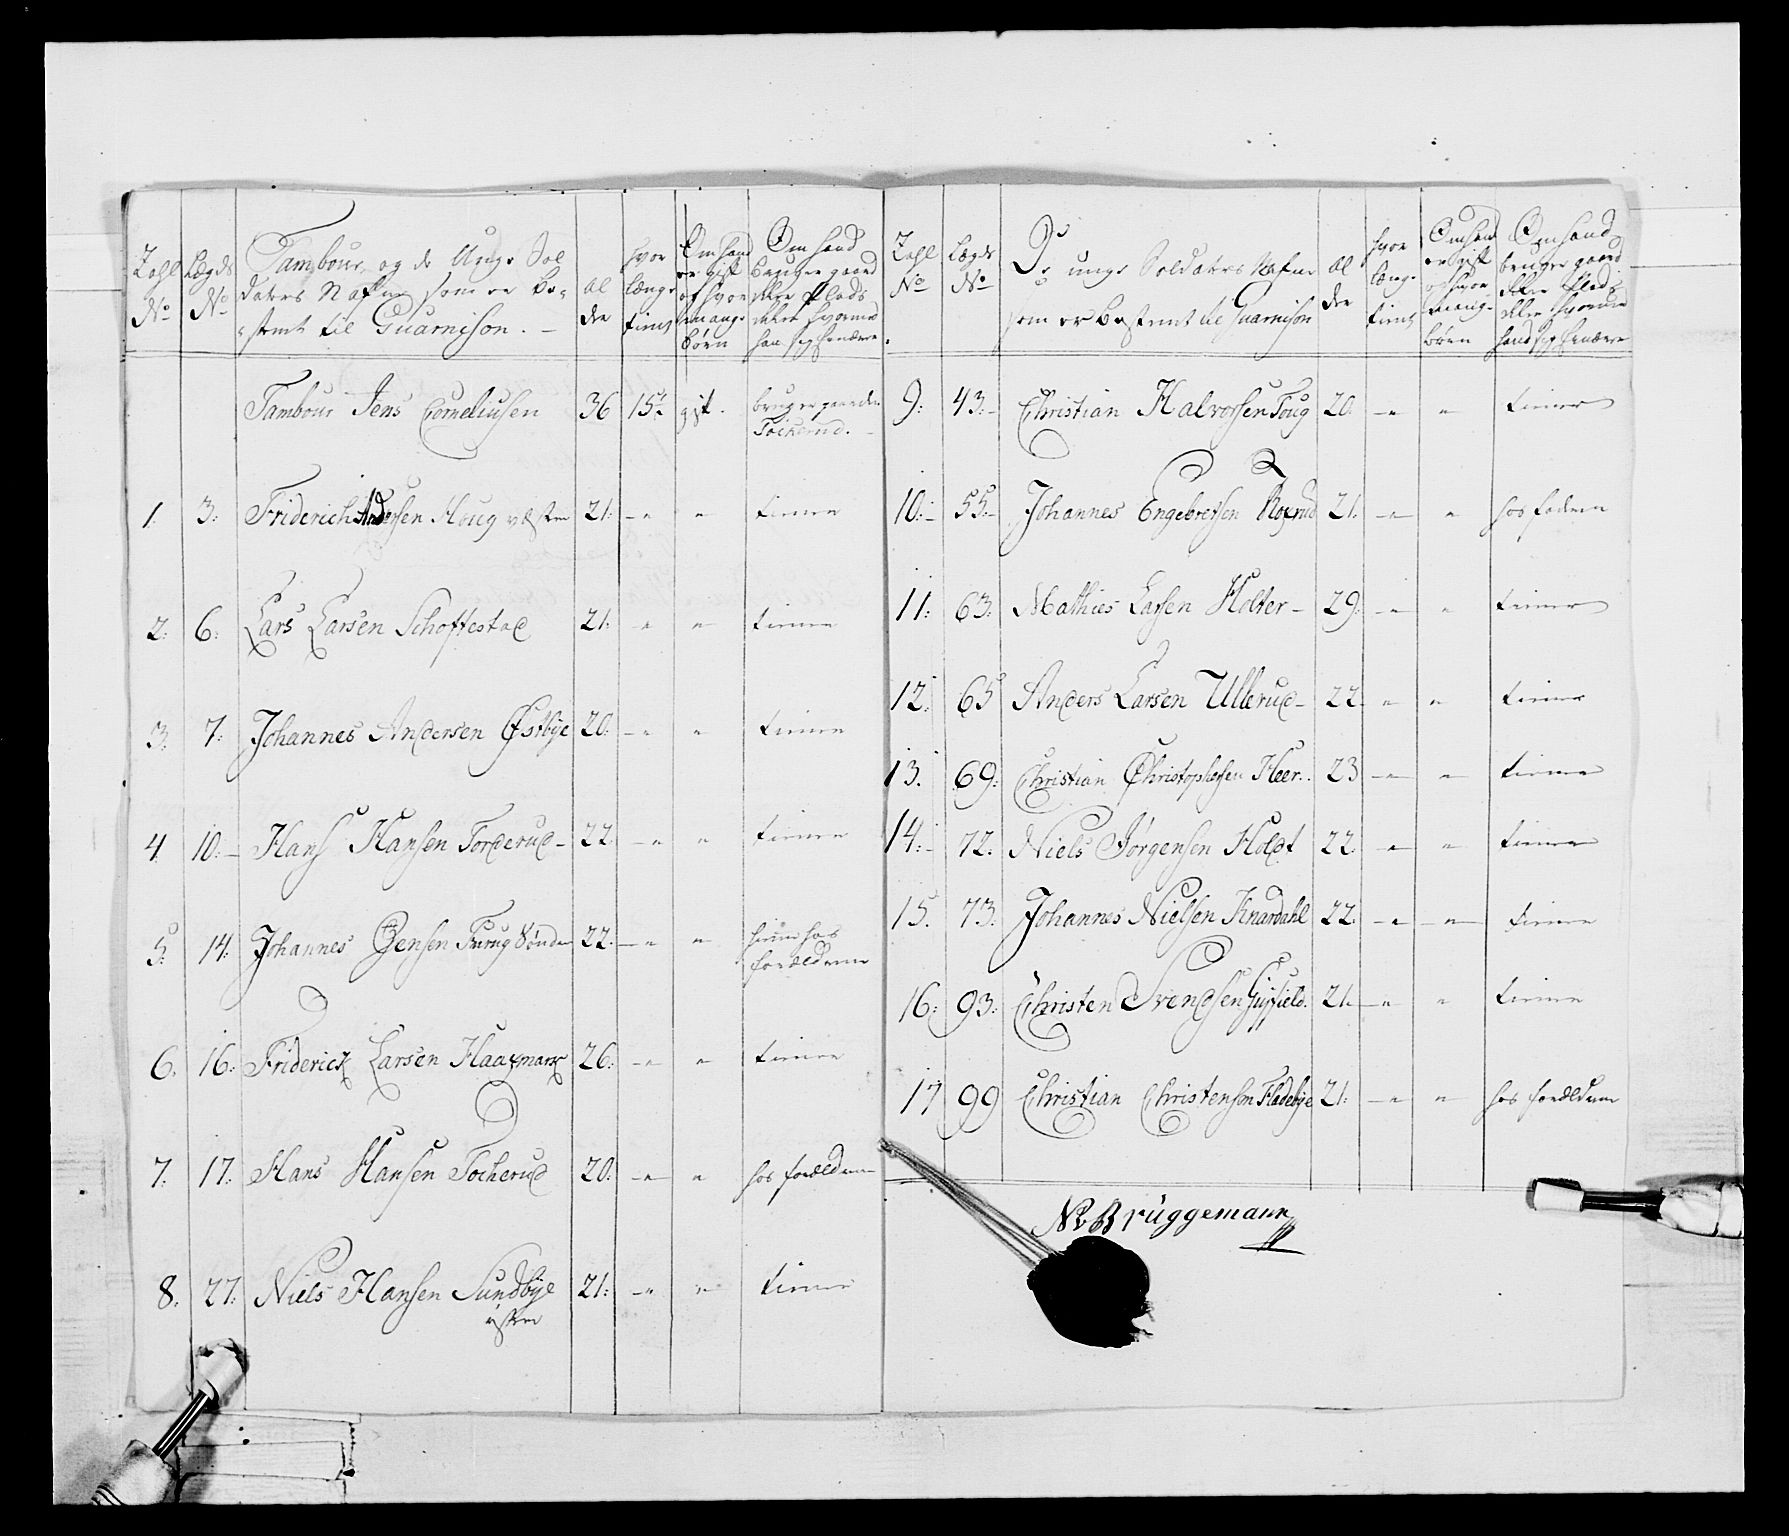 Zahl No
Lægds No
Tambour, og de Unge Sol
daters Nafne som er be-
stemt til Guarnison. —
al
der
hvor
længe
tient
Om hand
er gift
og hvor
mange
börn
Om hand
bruger gaard
eller Plads
eller hvormed
han sig ernærer
Tambour Jens Corneliusen 36 15 gift. bruger gaarden
Tockerud. —
1. 3. Friderich Andersen Houg vesten 21. — " " tiener
2. 6. Lars Larsen Schoftestad 21. " " tiener
3. 7. Johannes Andersen Østbye 20. — " " tiener
4. 10. — Hans Hansen Torderud — 22. — " " tiener
5. 14. Johannes Jensen Furug Sønder 22. — " " hiemme hos
forældrene
6. 16. Friderick Larsen Haaxmark 26. — " " tiener
7. 17. Hans Hansen Tocherud 20. — " " hos forældrene
8. 27. Niels Hansen Sundbye 21. — " " tiener
østre
Zahl No
Lægds No
De unge Soldaters Nafne
som er bestemt til Guarnison
al
der
hvor
længe
tient
Om hand
er gift
og hvor
mange
börn
Om hand
bruger gaard
eller Plads
eller hvormed
hand sig ernærer
9. 43. — Christian Halvorsen Toug 20. — " " tiener
10. — 55. — Johannes Engebretsen Roxrud 21. — " " hos faderen
11. 63. Mathies Larsen Holter — 29. — " " tiener
12. 65 Anders Larsen Ullerud — 22. " " tiener
13. 69. Christian Christophersen Heer. . 23 — " " tiener
14. — 72. Niels Jørgensen Holdt 22. — " " tiener
15. 73. Johannes Nielsen Knardahl 22. — " — " — tiener
16. 93. Christen Svendsen 21. — " " tiener
17 99 Christian Christenson Fladebye 21. — " " hos forældrene
Brüggemann